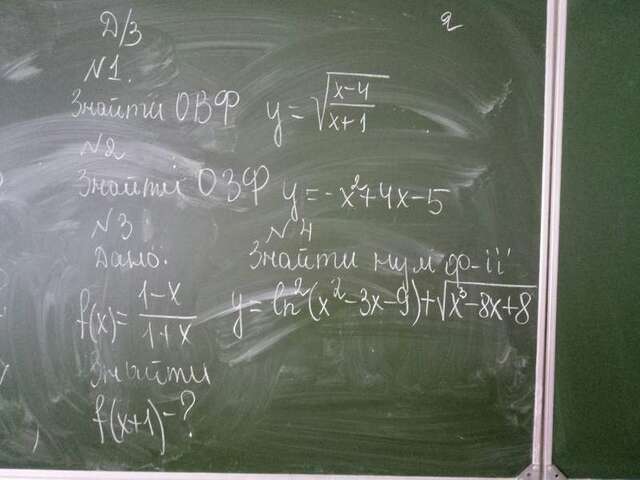 Д/З
N1.
Знайти ОВФ y = √((x-4)/(x+1))
N2
Знайти ОЗФ y = -x²+4x-5
N3
Дано:
f(x) = (1-x)/(1+x)
Знайти
f(x+1) - ?
N4
Знайти нулі ф-ії
y = ln²(x²-3x-9)+√(x³-8x+8)